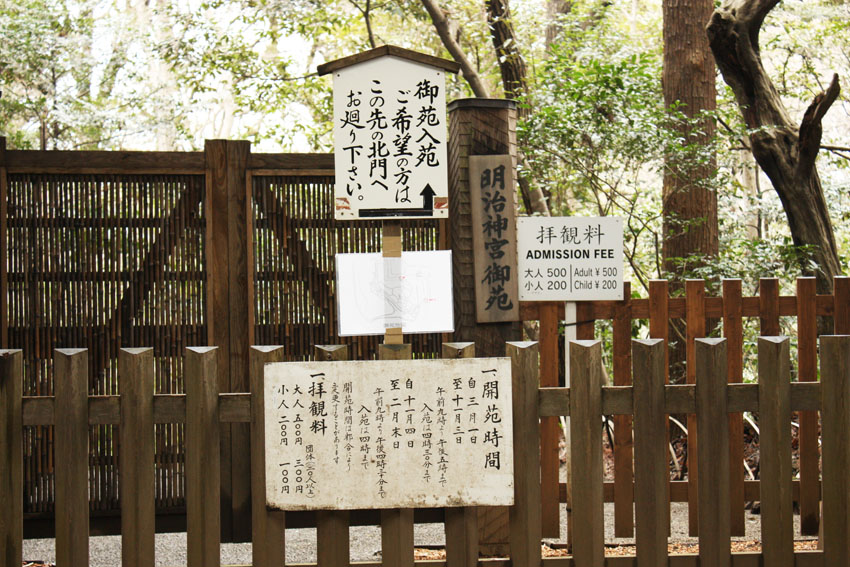 御苑入苑
ご希望の方は
この先の北門へ
お廻り下さい。
明治神宮御苑
拝観料
ADMISSION FEE
大人 500 Adult ¥ 500
小人 200 Child ¥ 200
一、開苑時間
自三月一日
至十一月三日
午前九時より午後五時まで
入苑は四時三〇分まで
自十一月四日
至二月末日
午前九時より午後四時三十分まで
入苑は四時まで
開苑時間は都合により
変更することがあります
一、拝観料
団体(二〇人以上)
大人 五〇〇円 三〇〇円
小人 二〇〇円 一〇〇円